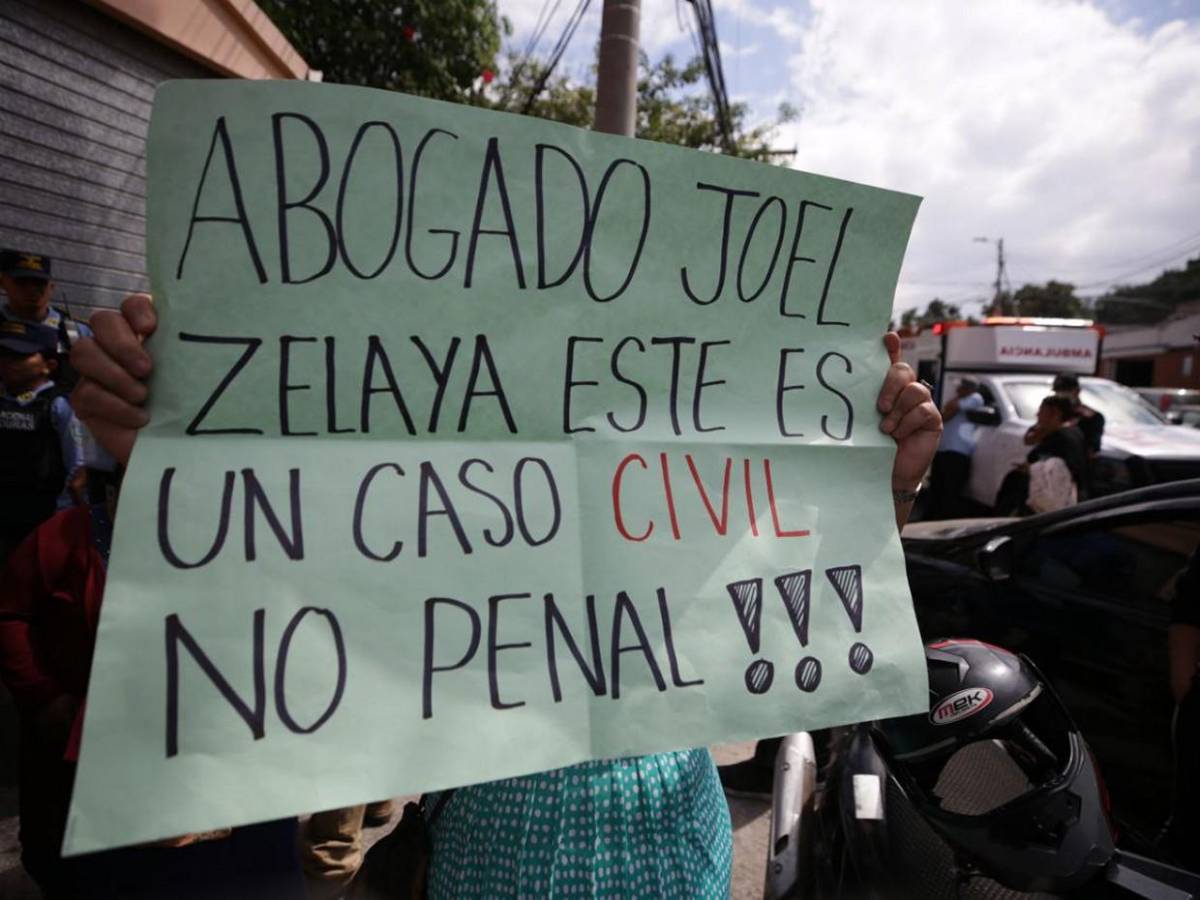 ABOGADO JOEL
ZELAYA ESTE ES
UN CASO CIVIL
NO PENAL !!!
AMBULANCIA
MEK